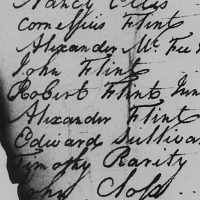 Nancy Ellis
Cornelius Flint
Alexander Mc Fee
John Flint
Robert Flint Jun
Alexander Flint
Edward Sullivan
Timothy Rarity
John